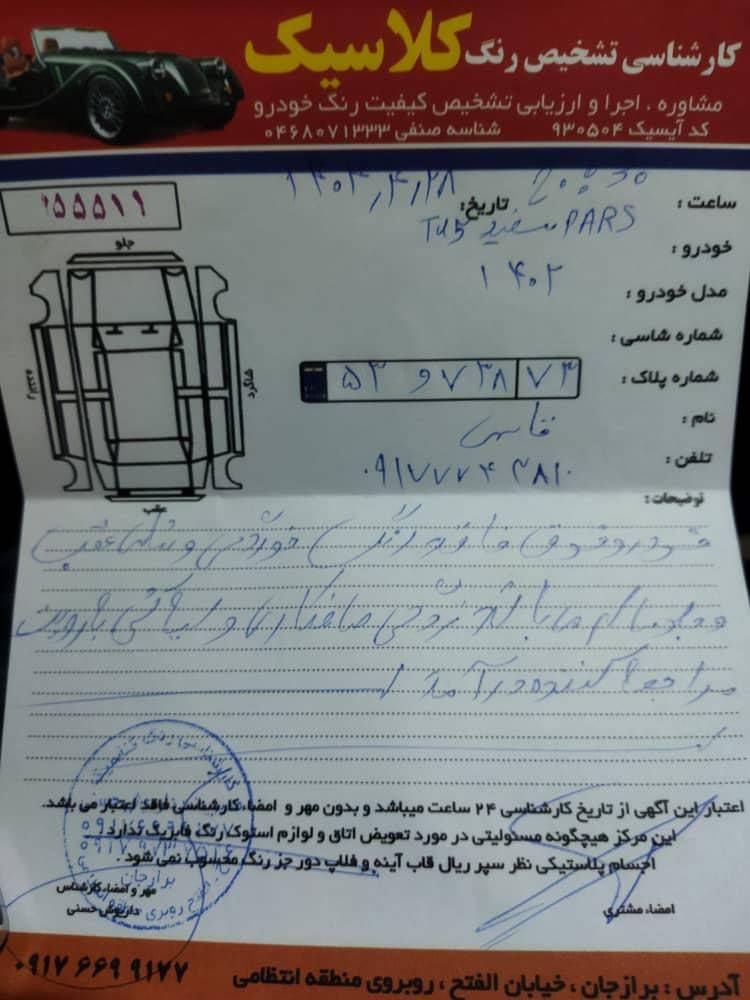 کارشناسی تشخیص رنگ کلاسیک
مشاوره . اجرا و ارزیابی تشخیص کیفیت رنگ خودرو
کد آیسیک ۹۳۰۵۰۴ شناسه صنفی ۰۴۶۸۰۷۱۳۳۳
ساعت : ۲۰:۳۰ تاریخ: ۱۴۰۴,۴,۲۸
۵۵۵۱۱
خودرو : PARS سفید TU5
مدل خودرو : ۱۴۰۲
شماره شاسی :
شماره پلاک : ۵۳ و ۷۳۸ ۷۳
نام :
تلفن : ۰۹۱۷۷۷۴۳۸۱۰
جلو
شاگرد
راننده
عقب
توضیحات :
خودرو فوق فاقد رنگ خوردگی و شاسی عقب
و جلو سالم میباشد صافکاری و لیسه گی با رویت
مراجعه کننده درآمد
اعتبار این آگهی از تاریخ کارشناسی ۲۴ ساعت میباشد و بدون مهر و امضاء کارشناسی فاقد اعتبار می باشد.
این مرکز هیچگونه مسئولیتی در مورد تعویض اتاق و لوازم استوک رنگ فابریک ندارد
اجسام پلاستیکی نظر سپر ریال قاب آینه و فلاپ دور جز رنگ محسوب نمی شود .
مهر و امضاء کارشناس
داریوش حسنی
امضاء مشتری
برازجان
آدرس : برازجان ، خیابان الفتح ، روبروی منطقه انتظامی
۰۹۱۷ ۶۶۹ ۹۱۷۷